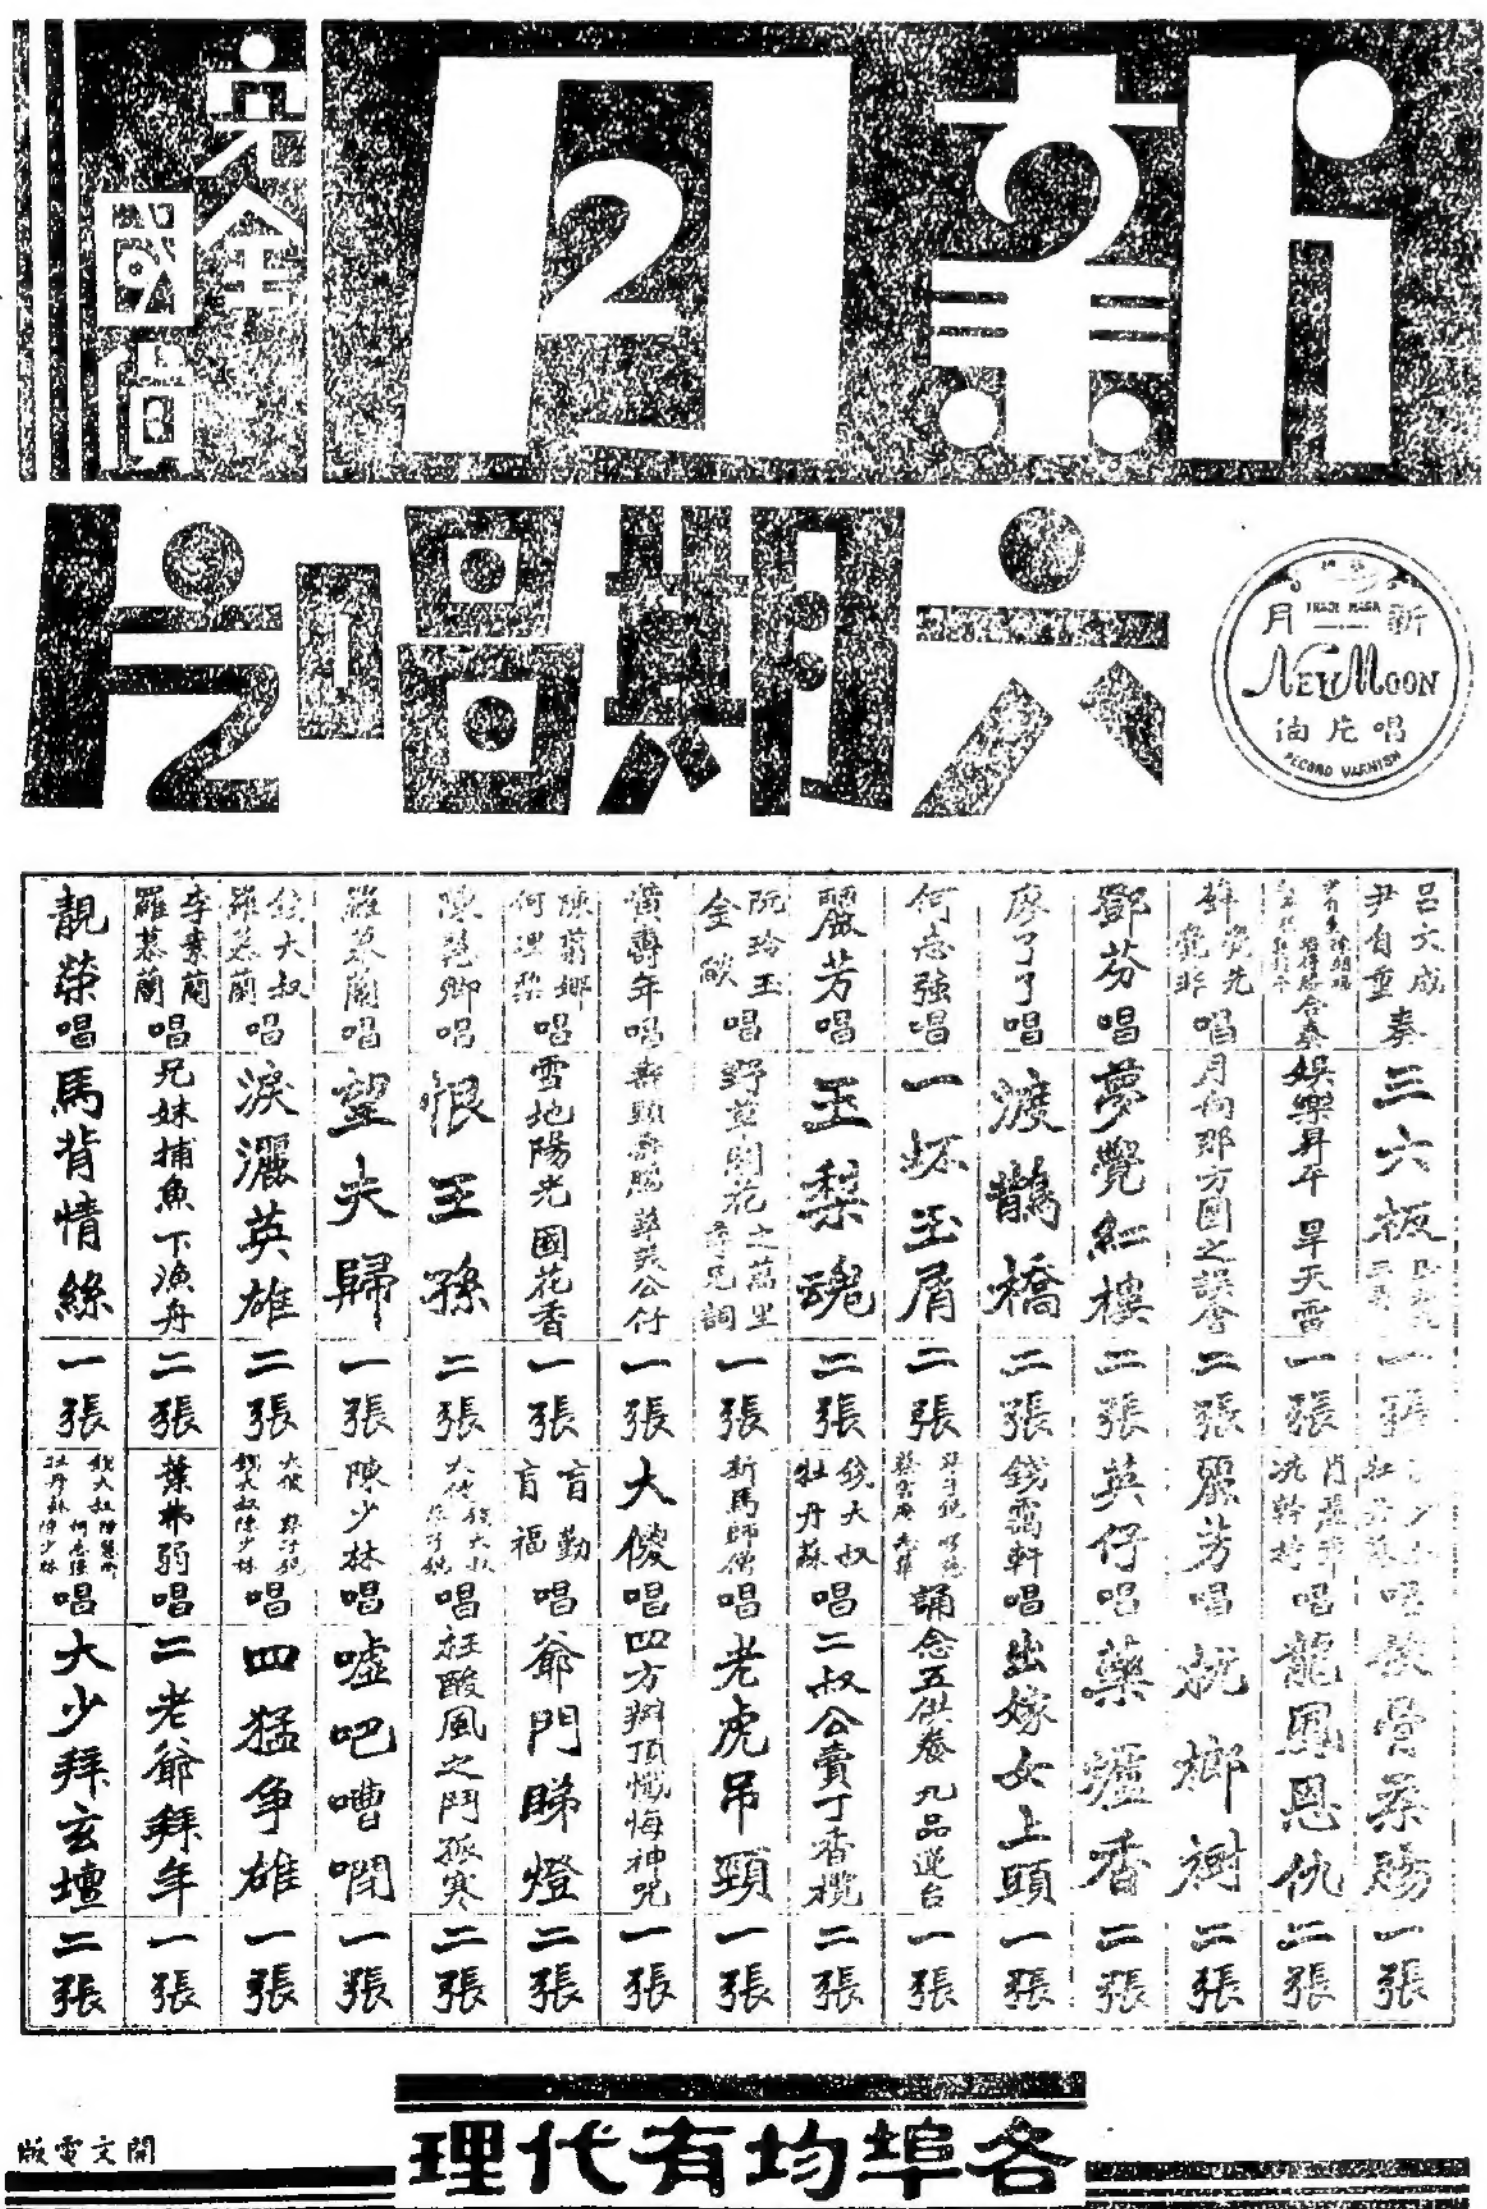 新月
完全
國貨
六期唱片
新月
TRADE MARK
NEW MOON
唱片油
RECORD VARNISH
呂文成 尹自重 奏 三六板 一張
合奏 娛樂昇平 旱天雷 一張
薛覺先 薛覺非 唱 月向那方圓之誤會 二張
鄧芬 唱 夢覺紅樓 二張
廖了了 唱 渡鵲橋 二張
何志強 唱 一坏玉屑 二張
麗芳 唱 玉梨魂 二張
阮玲玉 金燄 唱 野草閒花之萬里尋兄詞 一張
黃壽年 唱 一張
陳翦娜 何理梨 唱 雪地陽光 國花香 一張
陳艷卿 唱 恨王孫 二張
羅慕蘭 唱 望夫歸 一張
錢大叔 羅慕蘭 唱 淚灑英雄 二張
李素蘭 羅慕蘭 唱 兄妹捕魚 下漁舟 二張
靚榮 唱 馬背情絲 一張
唱 骨柔腸 一張
冼幹持 唱 龍鳳恩仇 二張
麗芳 唱 桄榔樹 二張
英仔 唱 藥爐香 二張
錢雪軒 唱 出嫁女上頭 一張
誦 念五供養 九品蓮台 一張
錢大叔 牡丹蘇 唱 二叔公賣丁香欖 二張
新馬師僧 唱 老虎吊頸 一張
大傻 唱 四方辦頂懺悔神咒 一張
盲勤 盲福 唱 爺門睇燈 二張
唱 狂酸風之鬥孤寒 二張
陳少林 唱 噓吧嘈閙 一張
大傻 錢大叔 陳少林 唱 四猛争雄 一張
葉弗弱 唱 二老爺拜年 一張
錢大叔 牡丹蘇 何志強 陳少林 唱 大少拜玄壇 二張
各埠均有代理
開文電版